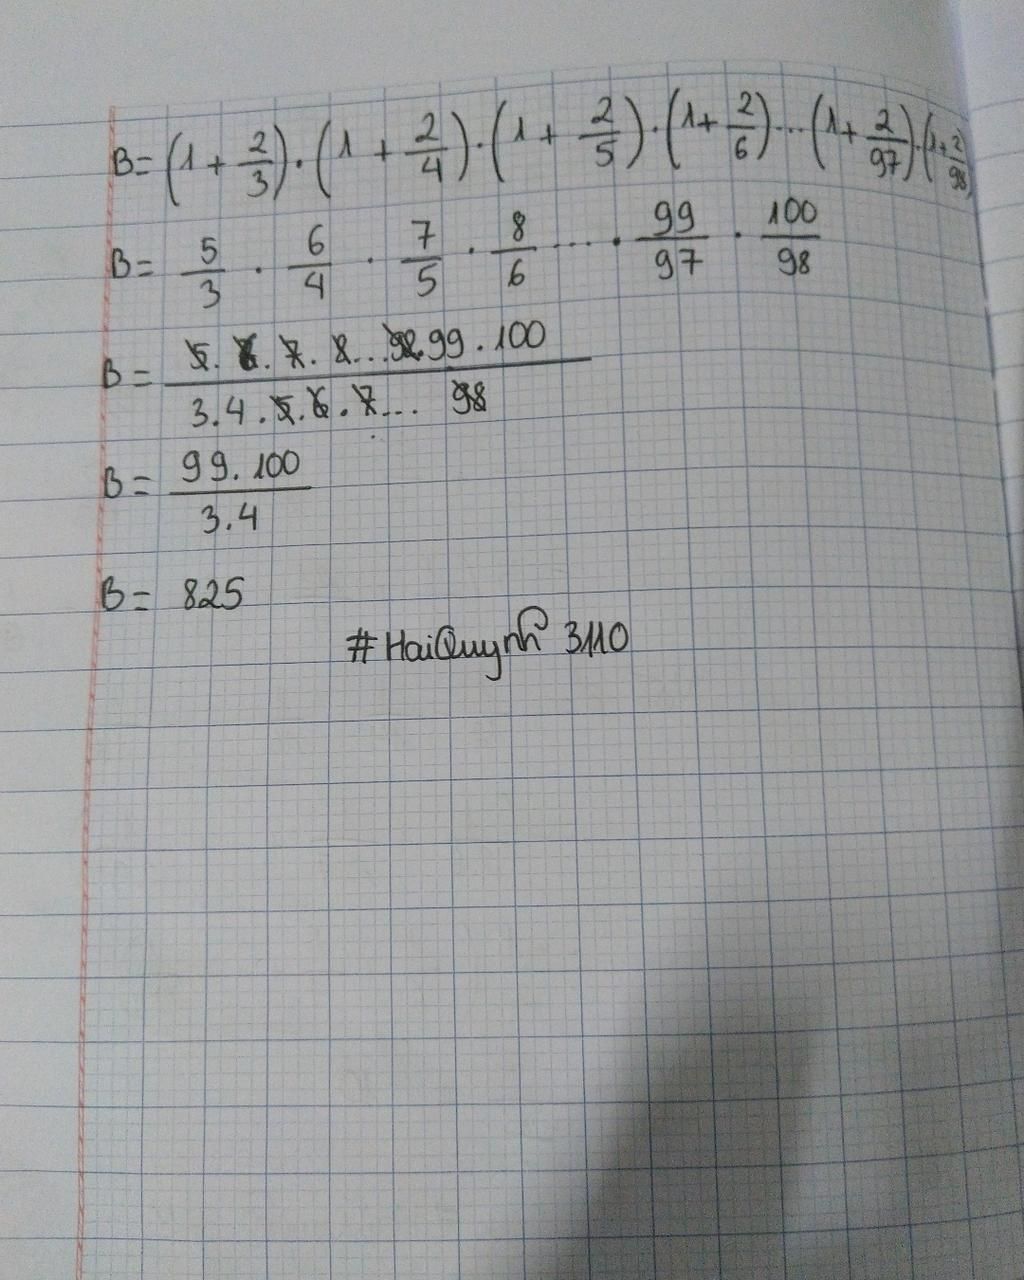 B = (1 + 2/3) . (1 + 2/4) . (1 + 2/5) . (1 + 2/6) ... (1 + 2/97) . (1 + 2/98)
B = 5/3 . 6/4 . 7/5 . 8/6 .... . 99/97 . 100/98
B = 5. 6. 7. 8...98.99.100 / 3.4.5.6.7... 98
B = 99.100 / 3.4
B = 825
#HaiQuynh 3110